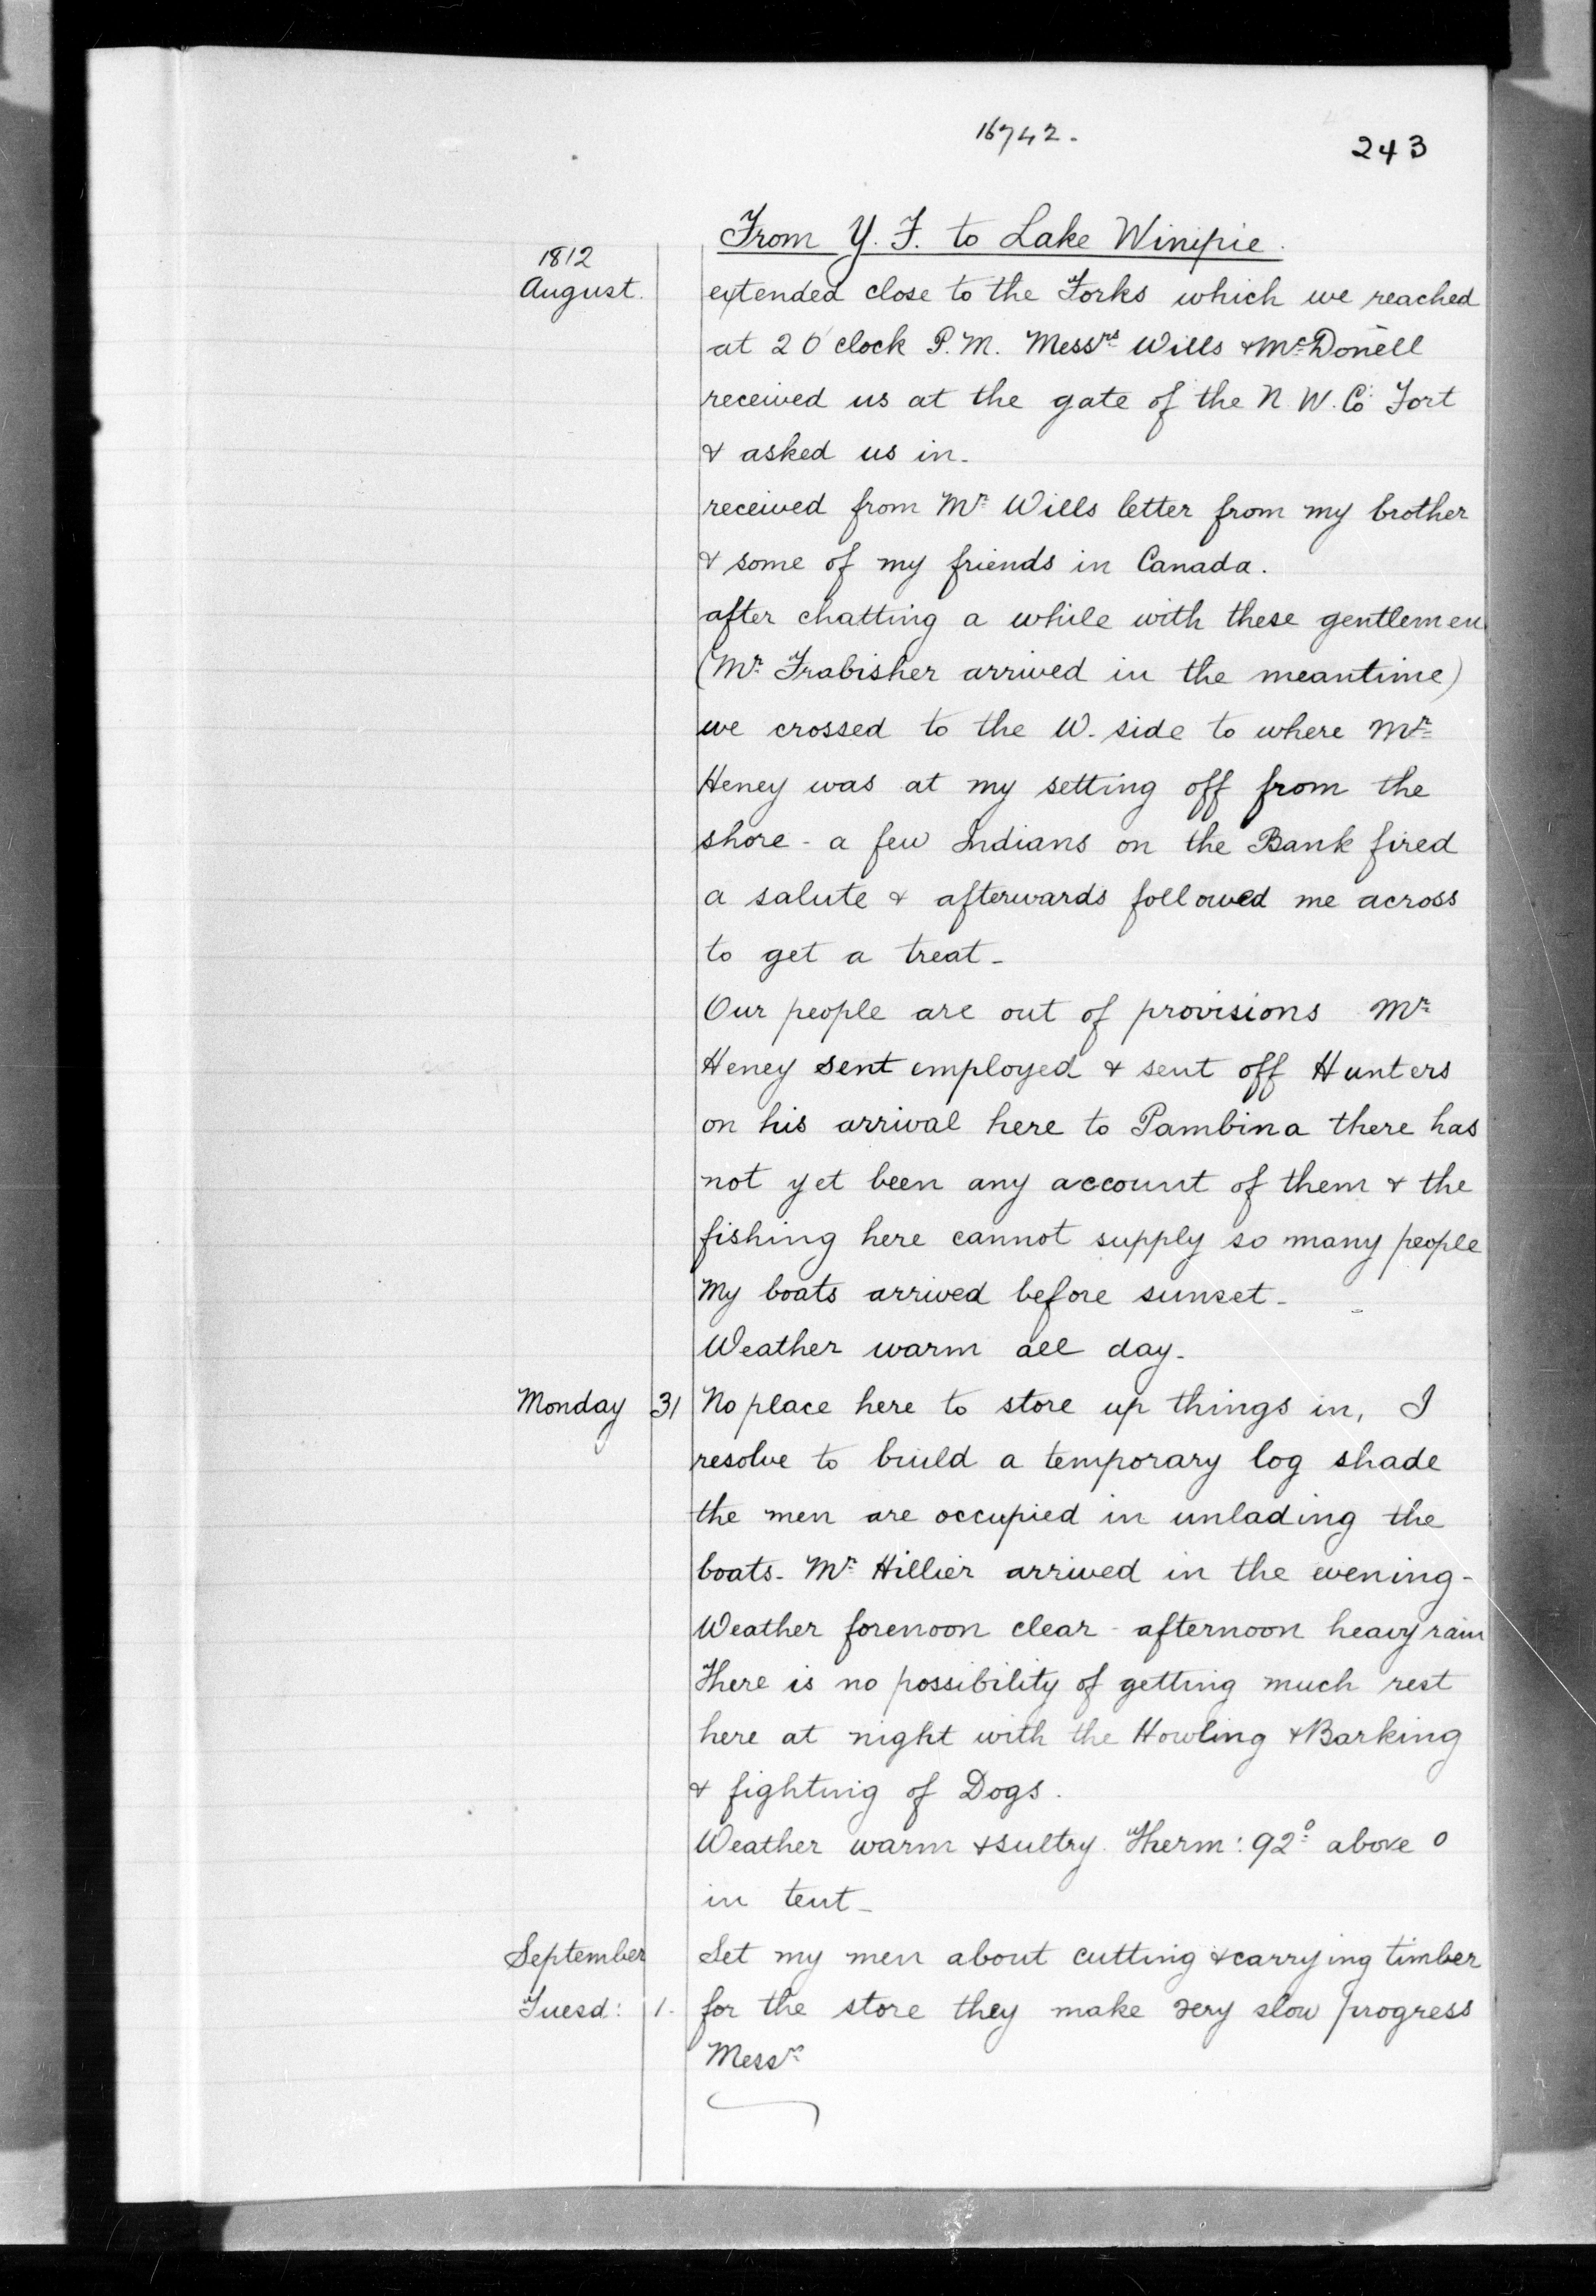 16742.
243
From Y. F. to Lake Winipie.
1812
August.
extended close to the Forks which we reached
at 2 O'clock P.M. Messrs Wills & McDonell
received us at the gate of the N. W. Co Fort
& asked us in.
received from Mr Wills letter from my brother
& some of my friends in Canada.
after chatting a while with these gentlemen
(Mr Frabisher arrived in the meantime)
we crossed to the W. side to where Mr
Heney was at my setting off from the
shore - a few Indians on the Bank fired
a salute & afterwards followed me across
to get a treat -
Our people are out of provisions Mr
Heney sent employed & sent off Hunters
on his arrival here to Pambina there has
not yet been any account of them & the
fishing here cannot supply so many people
My boats arrived before sunset -
Weather warm all day -
Monday 31 No place here to store up things in, I
resolve to build a temporary log shade
the men are occupied in unlading the
boats - Mr Hillier arrived in the evening -
Weather forenoon clear - afternoon heavy rain
There is no possibility of getting much rest
here at night with the Howling & Barking
& fighting of Dogs.
Weather warm & sultry. Therm: 92° above 0
in tent -
September Set my men about cutting & carrying timber
Tuesd: 1. for the store they make very slow progress
Messrs